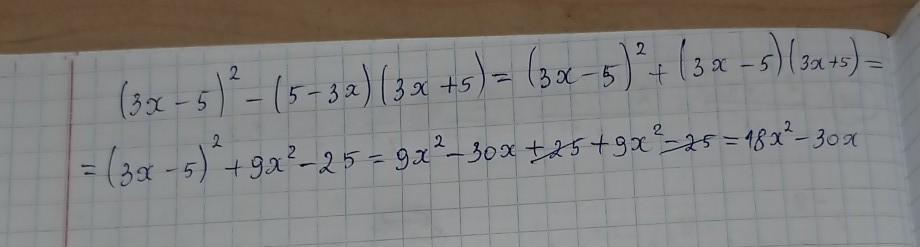 (3x-5)² - (5-3x)(3x+5) = (3x-5)² + (3x-5)(3x+5) =
= (3x-5)² + 9x² - 25 = 9x² - 30x + 25 + 9x² - 25 = 18x² - 30x